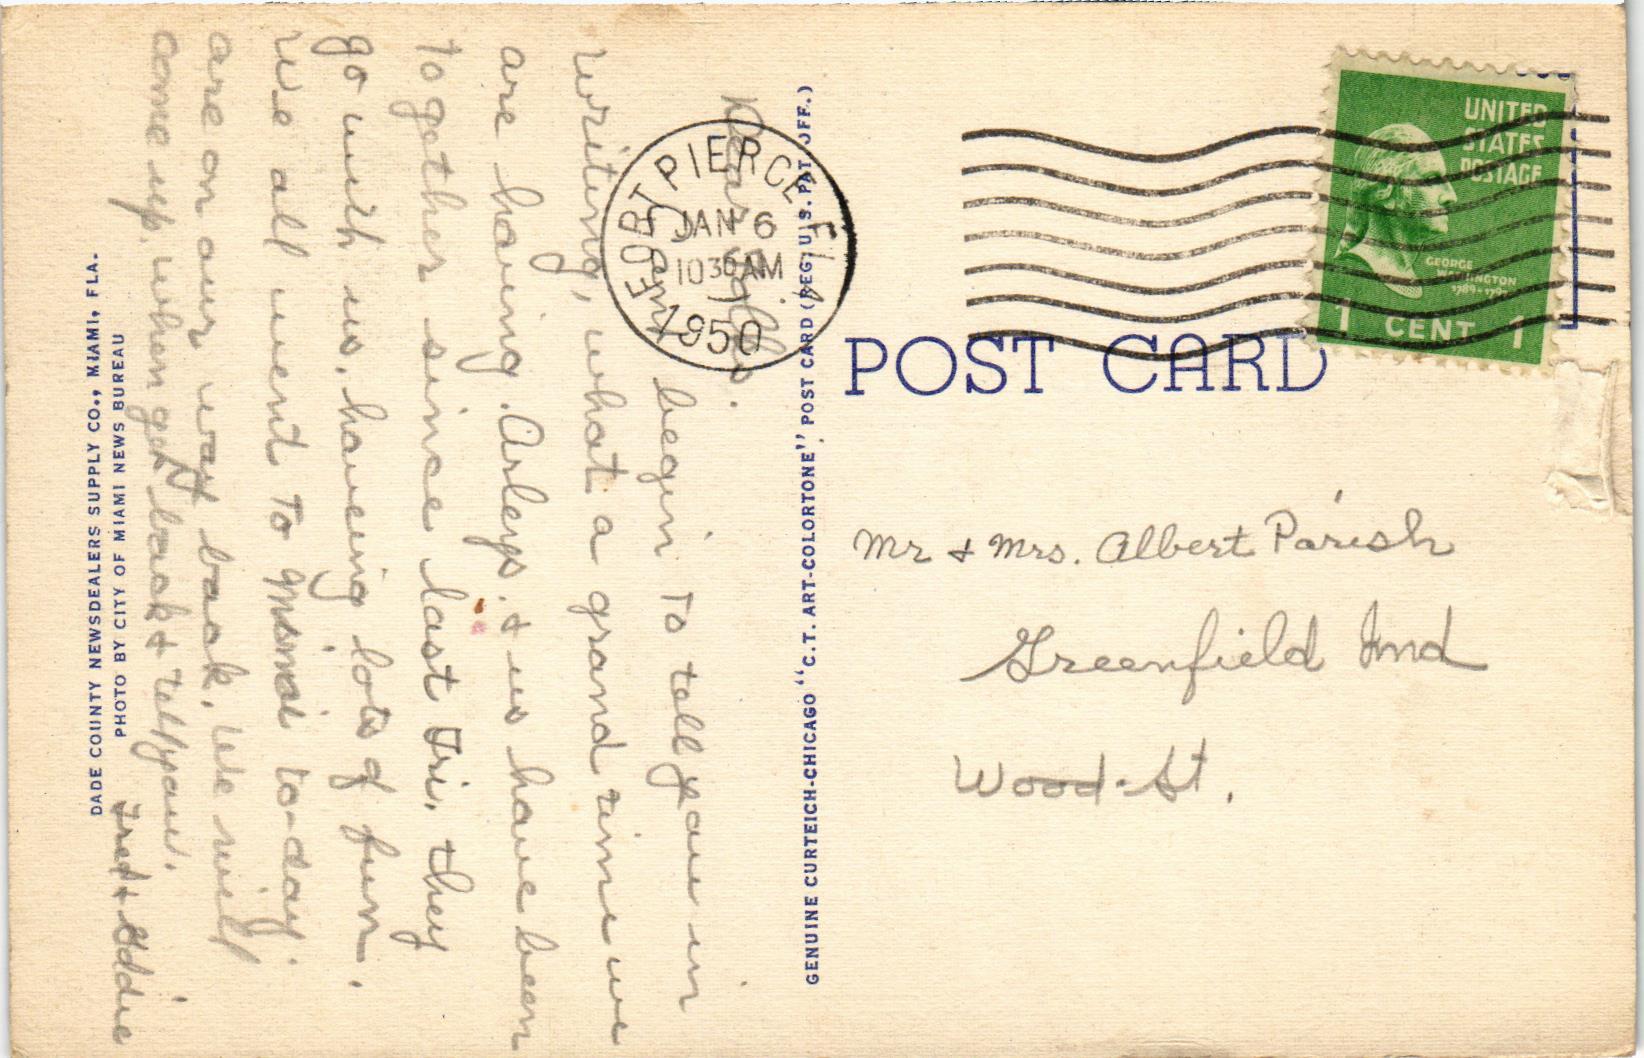 Dear
Cant begin to tell you in
writing, what a grand time we
are having. Arleys. & us have been
together since last Fri. they
go with us. haveing lots of fun.
We all went to Miami to-day
are on our way back. We will
come up. when get back & tell you.
Fred & Eddie
DADE COUNTY NEWSDEALERS SUPPLY CO., MIAMI, FLA.
PHOTO BY CITY OF MIAMI NEWS BUREAU
GENUINE CURTEICH-CHICAGO "C.T. ART-COLORTONE" POST CARD (REG. U.S. PAT. OFF.)
FORT PIERCE FLA
JAN 6
10 30 AM
1950
UNITED
STATES
POSTAGE
GEORGE
WASHINGTON
1789-1797
1 CENT 1
POST CARD
Mr & Mrs. Albert Parish
Greenfield Ind
Wood-St.